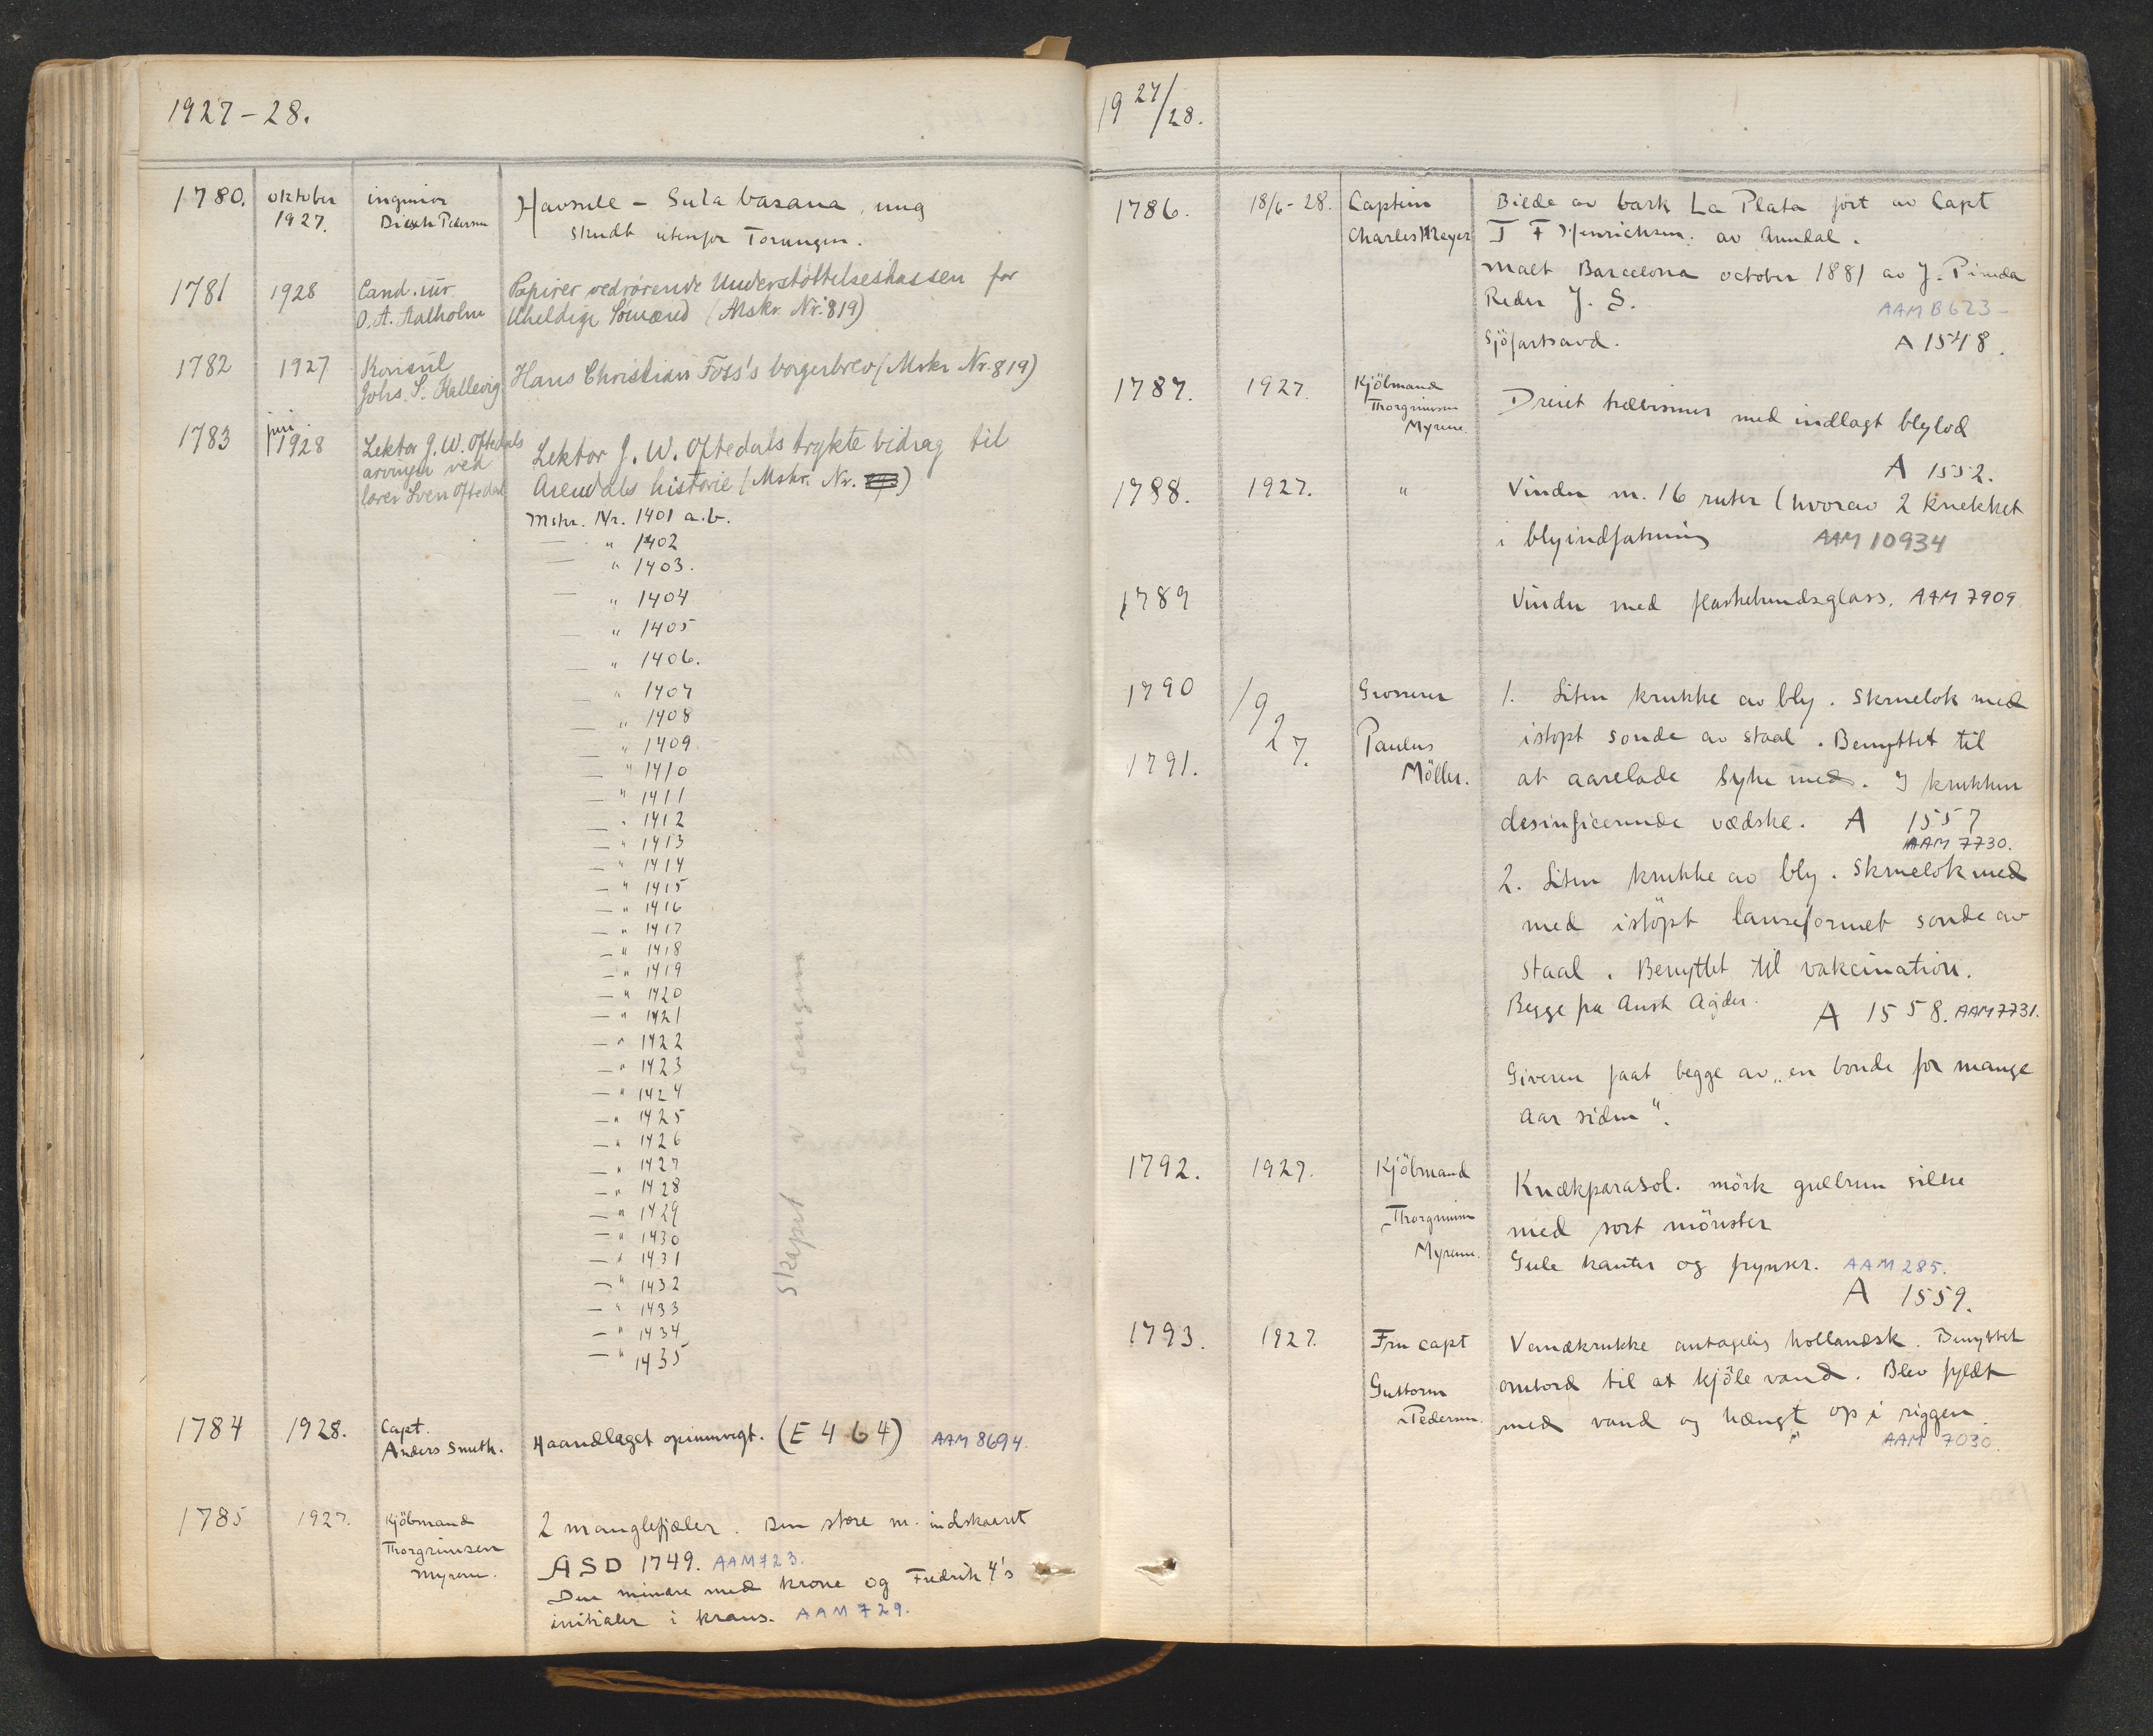 1927-28.
1780. oktober 1927. ingeniör Diesch Pedersen Havsule - Sula basana, ung
skudt utenfor Torungen.
1781 1928 Cand. iur. O. A. Aalholm Papirer vedrørende Understøttelseskassen for
Uheldige Sömænd (Mskr. Nr. 819)
1782 1927 Konsul Johs. S. Kallevig Hans Christian Foss's borgerbrev (Mskr Nr. 819)
1783 juni 1928 Lektor J. W. Oftedals arvinger ved lærer Sven Oftedal Lektor J. W. Oftedals trykte bidrag til
Arendals historie (Mskr. Nr. )
Mskr. Nr. 1401 a.b.
— " 1402
— " 1403.
— " 1404
— " 1405
— " 1406.
— " 1407
— " 1408
— " 1409
— " 1410
— " 1411
— " 1412
— " 1413
— " 1414
— " 1415
— " 1416
— " 1417
— " 1418
— " 1419
— " 1420
— " 1421
— " 1422
— " 1423
— " 1424
— " 1425
— " 1426
— " 1427
— " 1428
— " 1429
— " 1430
— " 1431
— " 1432
— " 1433
— " 1434
— " 1435
Skapet v
1784 1928. Capt. Anders Smith. Haandlaget opiumvegt. (E 464) AAM 8694.
1785 1927. Kjöbmand Thorgrimsen Myrene. 2 manglefjæler. Den store m. indskaaret
ASD 1749. AAM 723.
Den mindre med krone og Fredrik 4's
initialer i krans. AAM 729.
19 27/28.
1786. 18/6-28. Captein Charles Meyer Billede av bark La Plata fört av Capt
T F Henrichsen. av Arendal.
malt Barcelona october 1881 av J. Pineda
Reder J. S. AAM B 623 -
Sjöfartsavd. A 1548.
1787. 1927. Kjöbmand Thorgrimsen Myrene. Dreiet træbismer med indlagt blylod
A 1552.
1788. 1927. " Vindu m. 16 ruter (hvorav 2 knekket
i blyindfatning AAM 10934
1789 Vindu med flaskebundsglass. AAM 7909
1790 1927. Grosserer Paulus Möller. 1. Liten krukke av bly. Skruelok med
istöpt sonde av staal. Benyttet til
1791. at aarelade syke med. I krukken
desinficerende vædske. A 1557
AAM 7730.
2. Liten krukke av bly. Skruelok med
med istöpt lanseformet sonde av
staal. Benyttet til vakcination.
Begge fra Aust Agder. A 1558. AAM 7731.
Giveren faat begge av „en bonde for mange
aar siden“.
1792. 1927. Kjöbmand Thorgrimsen Myrene. Knækparasol. mörk gulbrun silke
med sort mönster
Gule kanter og frynser. AAM 285.
A 1559.
1793. 1927. Fru capt Guttorm Pedersen. Vandkrukke antagelig hollandsk. Benyttet
ombord til at kjöle vand. Blev fyldt
med vand og hængt op i riggen.
AAM 7030.